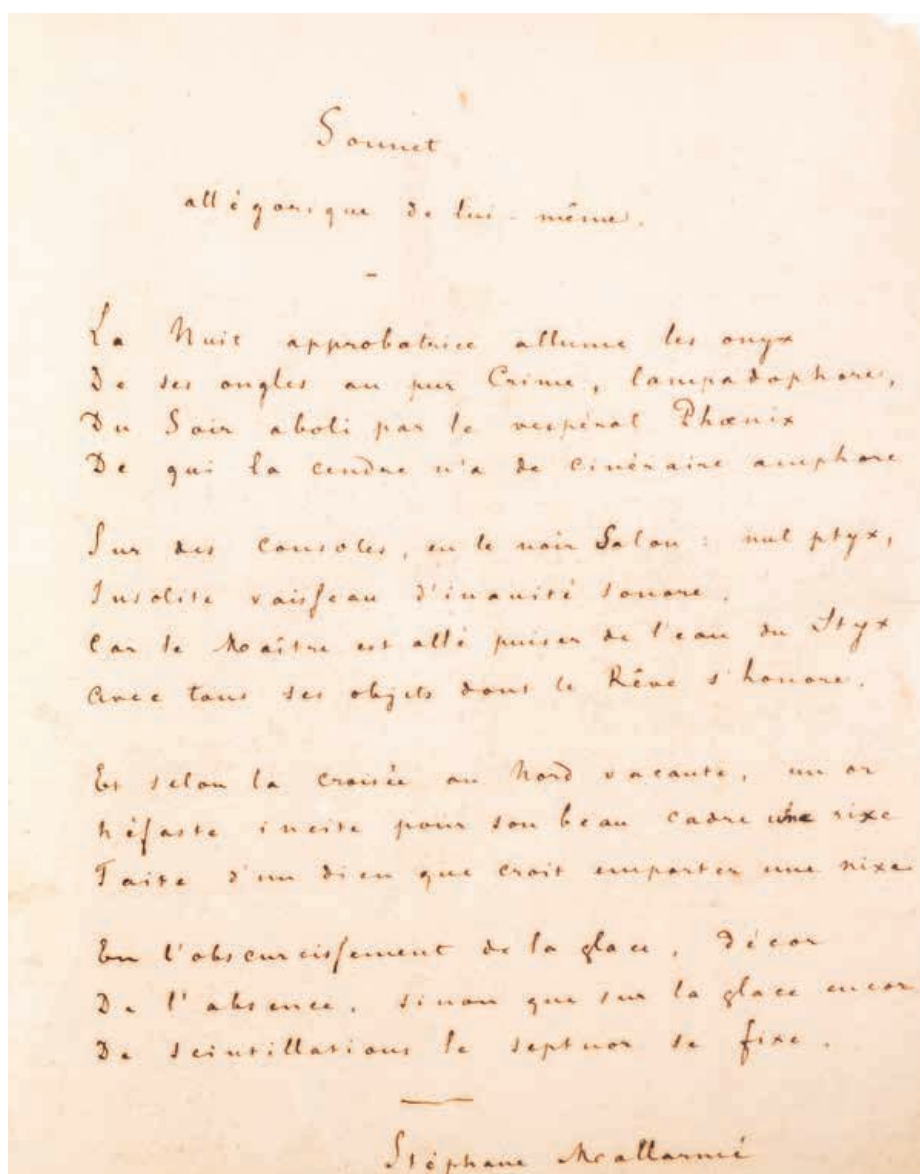 Sonnet
allégorique de lui-même.
-
La Nuit approbatrice allume les onyx
De ses ongles au pur Crime, lampadophore,
Du Soir aboli par le vespéral Phœnix
De qui la cendre n'a de cinéraire amphore
Sur des consoles, en le noir Salon : nul ptyx,
Insolite vaisseau d'inanité sonore,
Car le Maître est allé puiser de l'eau du Styx
Avec tous ses objets dont le Rêve s'honore.
Et selon la croisée au Nord vacante, un or
Néfaste incite pour son beau cadre une rixe
Faite d'un dieu que croit emporter une nixe
En l'obscurcissement de la glace, décor
De l'absence, sinon que sur la glace encor
De scintillations le septuor se fixe.
Stéphane Mallarmé